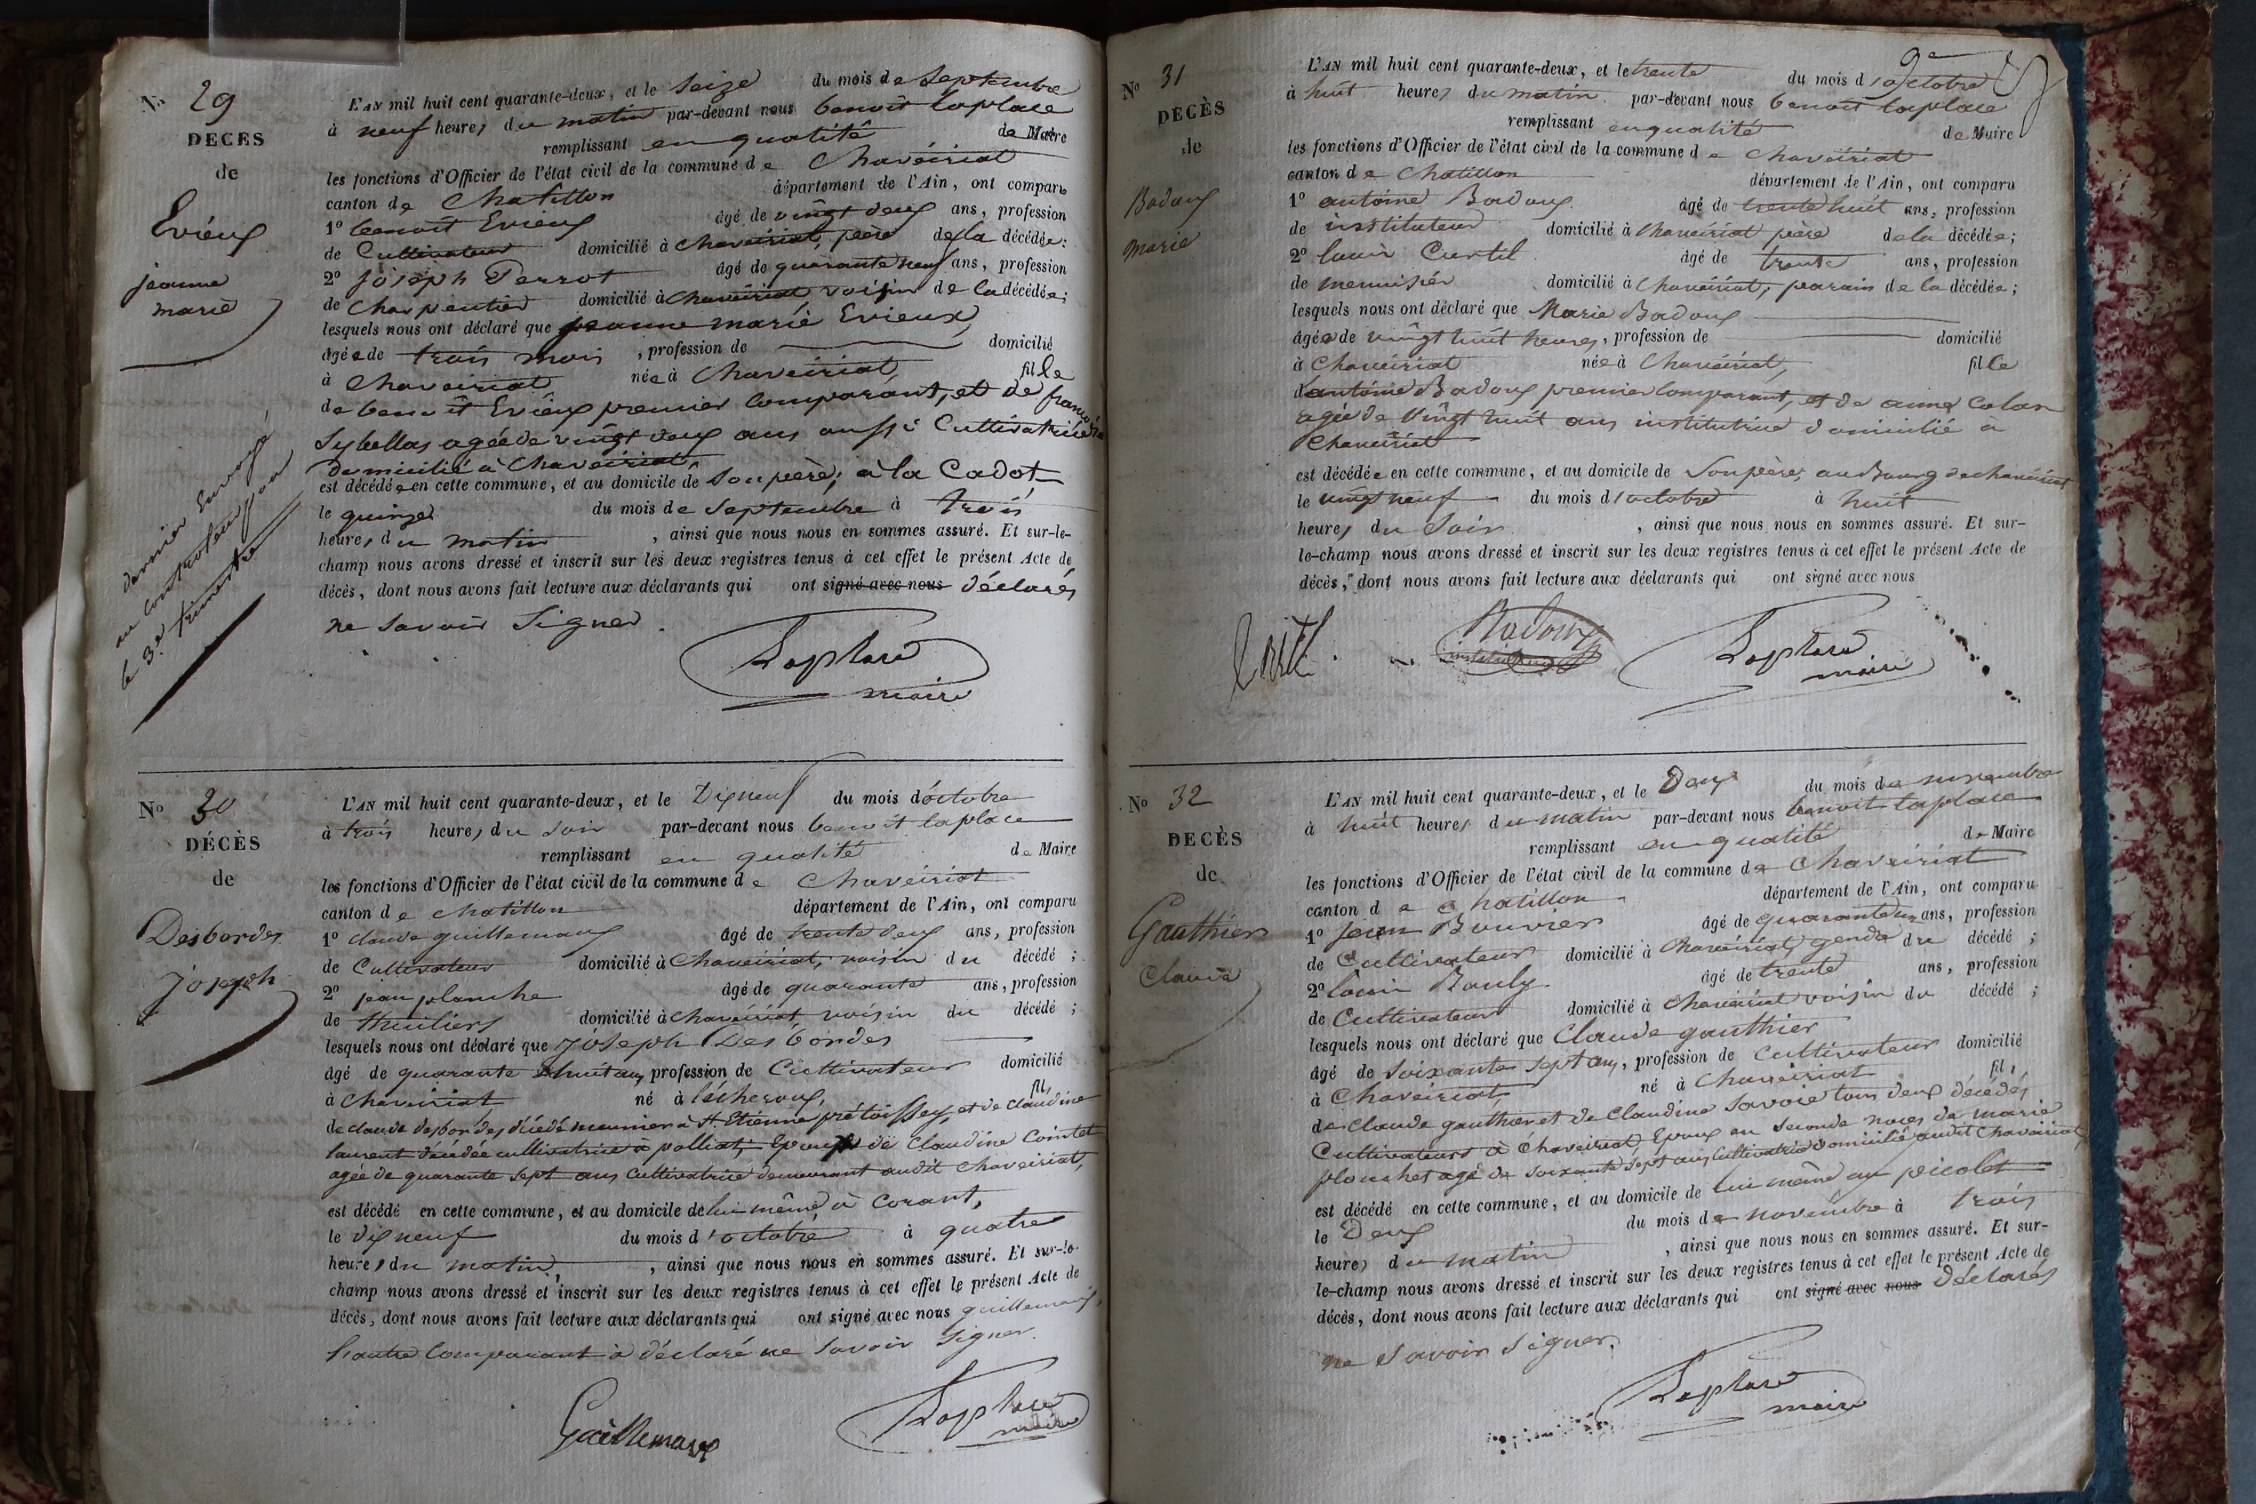 No 29
DÉCÈS
de
Evieux
jeanne
marie
dernier Envoyé
au Controleur
le 3e trimestre
L'AN mil huit cent quarante-deux, et le Seize du mois de Septembre
à neuf heures du matin par-devant nous benoit laplace
remplissant en qualité de Maire
les fonctions d'Officier de l'état civil de la commune de Chaveiriat
canton de Chatillon département de l'Ain, ont comparu
1° benoît Evieux âgé de vingt deux ans, profession
de Cultivateur domicilié à Chaveiriat, père de la décédée;
2° Joseph Perrot âgé de quarante neuf ans, profession
de Charpentier domicilié à Chaveiriat voisin de la décédée;
lesquels nous ont déclaré que jeanne marie Evieux
âgée de trois mois, profession de domicilié
à Chaveiriat née à Chaveiriat, fille
de benoît Evieux premier Comparant, et de
Sybellas agée de vingt deux ans aussi Cultivatrice
domicilié à Chaveiriat
est décédée en cette commune, et au domicile de Son père, à la Cadot
le quinze du mois de Septembre à trois
heures du matin, ainsi que nous nous en sommes assuré. Et sur-le-
champ nous avons dressé et inscrit sur les deux registres tenus à cet effet le présent Acte de
décès, dont nous avons fait lecture aux déclarants qui ont signé avec nous déclarés
ne Savoir Signer.
Laplace
maire
No 30
DÉCÈS
de
Desbordes
Joseph
L'AN mil huit cent quarante-deux, et le Dix neuf du mois d'octobre
à trois heures du Soir par-devant nous benoit laplace
remplissant en qualité de Maire
les fonctions d'Officier de l'état civil de la commune de Chaveiriat
canton de Chatillon département de l'Ain, ont comparu
1° claude guillemaux âgé de trente deux ans, profession
de Cultivateur domicilié à Chaveiriat, voisin du décédé;
2° jean planche âgé de quarante ans, profession
de thuiliers domicilié à Chaveiriat voisin du décédé;
lesquels nous ont déclaré que Joseph Desbordes
âgé de quarante huit ans, profession de Cultivateur domicilié
à Chaveiriat né à l'écheroux, fils
de claude desbordes décédé meunier à St Etienne prétoissey, et de claudine
laurent décédée cultivatrice à polliat; Epoux de Claudine Cointet
agée de quarante sept ans Cultivatrice demeurant audit Chaveiriat,
est décédé en cette commune, et au domicile de lui même à Corant,
le dix neuf du mois d'octobre à quatre
heures du matin, ainsi que nous nous en sommes assuré. Et sur-le-
champ nous avons dressé et inscrit sur les deux registres tenus à cet effet le présent Acte de
décès, dont nous avons fait lecture aux déclarants qui ont signé avec nous guillemaux,
l'autre Comparant à déclaré ne Savoir Signer.
Guillemaux
Laplace
maire
9e
No 31
DÉCÈS
de
Badoux
marie
L'AN mil huit cent quarante-deux, et le trente du mois d'octobre
à huit heures du matin par-devant nous benoit laplace
remplissant en qualité de Maire
les fonctions d'Officier de l'état civil de la commune de Chaveiriat
canton de Chatillon département de l'Ain, ont comparu
1° antoine Badoux âgé de trente huit ans, profession
de instituteur domicilié à Chaveiriat père de la décédée;
2° louis Curtil âgé de trente ans, profession
de menuisier domicilié à Chaveiriat, parain de la décédée;
lesquels nous ont déclaré que Marie Badoux
âgée de vingt huit heures, profession de domicilié
à Chaveiriat née à Chaveiriat, fille
d'antoine Badoux premier Comparant, et de anne Colan
agée de Vingt huit ans institutrice domicilié à
Chaveiriat
est décédée en cette commune, et au domicile de Son père, au Bourg de chaveiriat
le vingt neuf du mois d'octobre à huit
heures du Soir, ainsi que nous nous en sommes assuré. Et sur-
le-champ nous avons dressé et inscrit sur les deux registres tenus à cet effet le présent Acte de
décès, dont nous avons fait lecture aux déclarants qui ont signé avec nous
Curtil
Badoux
instituteur
Laplace
maire
No 32
DÉCÈS
de
Gauthier
Claude
L'AN mil huit cent quarante-deux, et le Deux du mois de novembre
à huit heures du matin par-devant nous benoit laplace
remplissant en qualité de Maire
les fonctions d'Officier de l'état civil de la commune de Chaveiriat
canton de Chatillon département de l'Ain, ont comparu
1° Jean Bouvier âgé de quarante un ans, profession
de Cultivateur domicilié à Chaveiriat, gendre du décédé;
2° louis Bouly âgé de trente ans, profession
de Cultivateur domicilié à Chaveiriat voisin du décédé;
lesquels nous ont déclaré que Claude gauthier
âgé de soixante sept ans, profession de Cultivateur domicilié
à Chaveiriat né à Chaveiriat fils
de Claude gauthier et de Claudine Savoie tous deux décédés
Cultivateurs à Chaveiriat, Epoux en seconde noces de marie
planchet agé de soixante sept ans Cultivatrice domicilié audit Chaveiriat,
est décédé en cette commune, et au domicile de lui même au picolet
le Deux du mois de novembre à trois
heures du matin, ainsi que nous nous en sommes assuré. Et sur-
le-champ nous avons dressé et inscrit sur les deux registres tenus à cet effet le présent Acte de
décès, dont nous avons fait lecture aux déclarants qui ont signé avec nous déclarés
ne Savoir Signer.
Laplace
maire